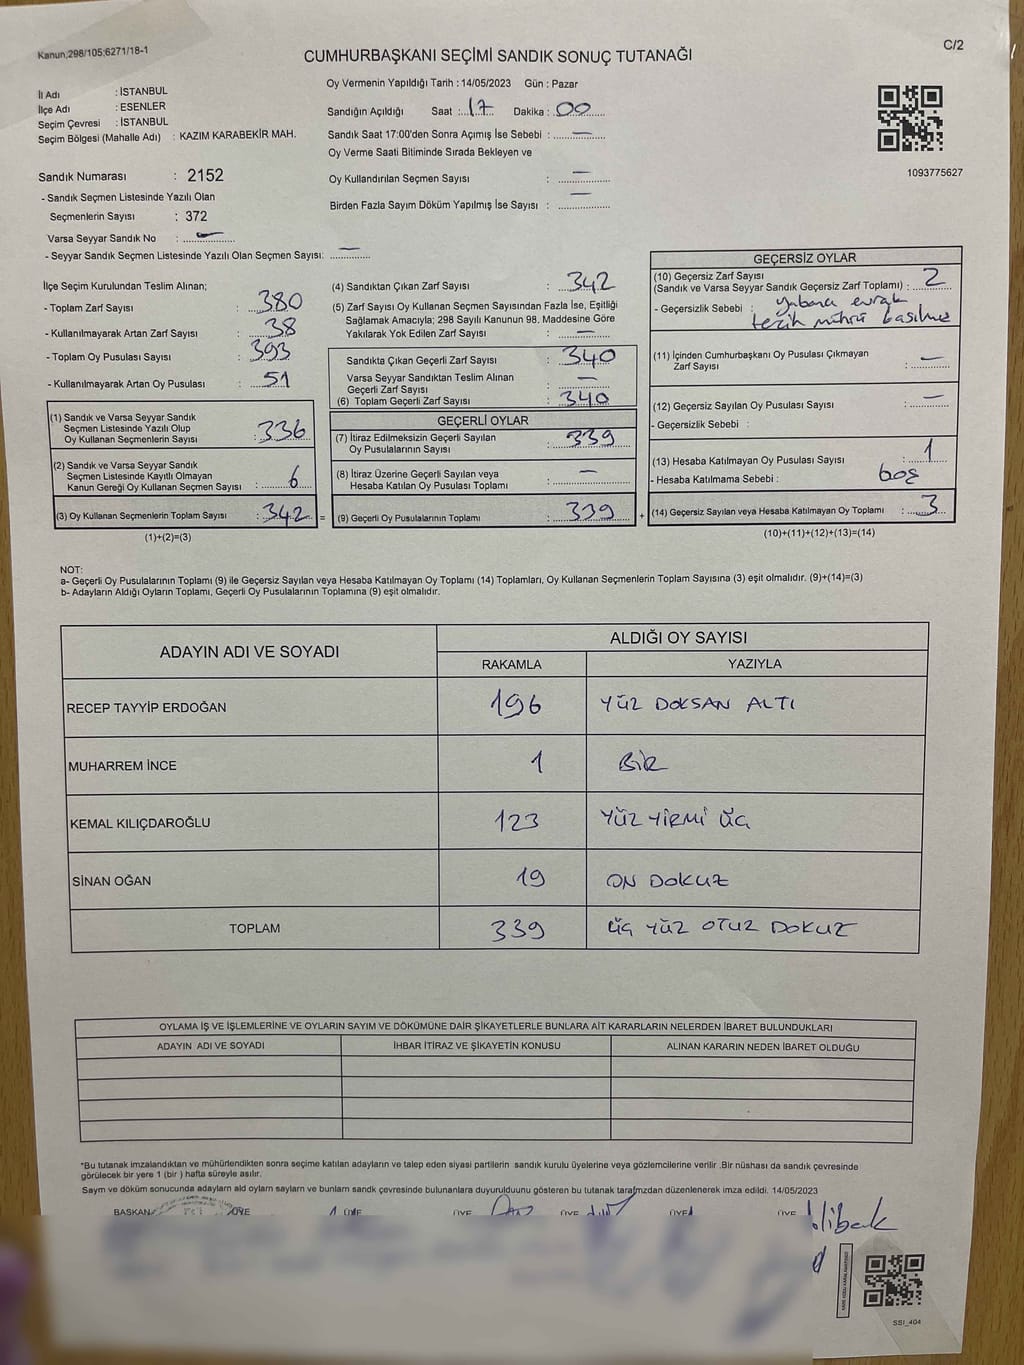 Kanun;298/105;6271/18-1
C/2
CUMHURBAŞKANI SEÇİMİ SANDIK SONUÇ TUTANAĞI
İl Adı : İSTANBUL
İlçe Adı : ESENLER
Seçim Çevresi : İSTANBUL
Seçim Bölgesi (Mahalle Adı) : KAZIM KARABEKİR MAH.
Sandık Numarası : 2152
- Sandık Seçmen Listesinde Yazılı Olan
Seçmenlerin Sayısı : 372
Varsa Seyyar Sandık No : —
- Seyyar Sandık Seçmen Listesinde Yazılı Olan Seçmen Sayısı: —
Oy Vermenin Yapıldığı Tarih : 14/05/2023 Gün : Pazar
Sandığın Açıldığı Saat : 17 Dakika : 00
Sandık Saat 17:00'den Sonra Açımış İse Sebebi : —
Oy Verme Saati Bitiminde Sırada Bekleyen ve
Oy Kullandırılan Seçmen Sayısı : —
Birden Fazla Sayım Döküm Yapılmış İse Sayısı : —
1093775627
İlçe Seçim Kurulundan Teslim Alınan;
- Toplam Zarf Sayısı : 380
- Kullanılmayarak Artan Zarf Sayısı : 38
- Toplam Oy Pusulası Sayısı : 393
- Kullanılmayarak Artan Oy Pusulası : 51
(1) Sandık ve Varsa Seyyar Sandık
Seçmen Listesinde Yazılı Olup
Oy Kullanan Seçmenlerin Sayısı : 336
(2) Sandık ve Varsa Seyyar Sandık
Seçmen Listesinde Kayıtlı Olmayan
Kanun Gereği Oy Kullanan Seçmen Sayısı : 6
(3) Oy Kullanan Seçmenlerin Toplam Sayısı : 342 =
(1)+(2)=(3)
(4) Sandıktan Çıkan Zarf Sayısı : 342
(5) Zarf Sayısı Oy Kullanan Seçmen Sayısından Fazla İse, Eşitliği
Sağlamak Amacıyla; 298 Sayılı Kanunun 98. Maddesine Göre
Yakılarak Yok Edilen Zarf Sayısı : —
Sandıkta Çıkan Geçerli Zarf Sayısı : 340
Varsa Seyyar Sandıktan Teslim Alınan
Geçerli Zarf Sayısı : —
(6) Toplam Geçerli Zarf Sayısı : 340
GEÇERLİ OYLAR
(7) İtiraz Edilmeksizin Geçerli Sayılan
Oy Pusulalarının Sayısı : 339
(8) İtiraz Üzerine Geçerli Sayılan veya
Hesaba Katılan Oy Pusulası Toplamı : —
(9) Geçerli Oy Pusulalarının Toplamı : 339 +
GEÇERSİZ OYLAR
(10) Geçersiz Zarf Sayısı
(Sandık ve Varsa Seyyar Sandık Geçersiz Zarf Toplamı) : 2
- Geçersizlik Sebebi : yabancı evrak
tercih mührü basılmış
(11) İçinden Cumhurbaşkanı Oy Pusulası Çıkmayan
Zarf Sayısı : —
(12) Geçersiz Sayılan Oy Pusulası Sayısı : —
- Geçersizlik Sebebi :
(13) Hesaba Katılmayan Oy Pusulası Sayısı : 1
- Hesaba Katılmama Sebebi : boş
(14) Geçersiz Sayılan veya Hesaba Katılmayan Oy Toplamı : 3
(10)+(11)+(12)+(13)=(14)
NOT:
a- Geçerli Oy Pusulalarının Toplamı (9) ile Geçersiz Sayılan veya Hesaba Katılmayan Oy Toplamı (14) Toplamları, Oy Kullanan Seçmenlerin Toplam Sayısına (3) eşit olmalıdır. (9)+(14)=(3)
b- Adayların Aldığı Oyların Toplamı, Geçerli Oy Pusulalarının Toplamına (9) eşit olmalıdır.
ADAYIN ADI VE SOYADI ALDIĞI OY SAYISI
RAKAMLA YAZIYLA
RECEP TAYYİP ERDOĞAN 196 YÜZ DOKSAN ALTI
MUHARREM İNCE 1 BİR
KEMAL KILIÇDAROĞLU 123 YÜZ YİRMİ ÜÇ
SİNAN OĞAN 19 ON DOKUZ
TOPLAM 339 ÜÇ YÜZ OTUZ DOKUZ
OYLAMA İŞ VE İŞLEMLERİNE VE OYLARIN SAYIM VE DÖKÜMÜNE DAİR ŞİKAYETLERLE BUNLARA AİT KARARLARIN NELERDEN İBARET BULUNDUKLARI
ADAYIN ADI VE SOYADI İHBAR İTİRAZ VE ŞİKAYETİN KONUSU ALINAN KARARIN NEDEN İBARET OLDUĞU
*Bu tutanak imzalandıktan ve mühürlendikten sonra seçime katılan adayların ve talep eden siyasi partilerin sandık kurulu üyelerine veya gözlemcilerine verilir .Bir nüshası da sandık çevresinde
görülecek bir yere 1 (bir ) hafta süreyle asılır.
Sayım ve döküm sonucunda adayların ald oyların sayları ve bunların sandk çevresinde bulunanlara duyurulduunu gösteren bu tutanak tarafmzdan düzenlenerek imza edildi. 14/05/2023
BAŞKAN ÜYE ÜYE ÜYE ÜYE ÜYE ÜYE
SSI_404